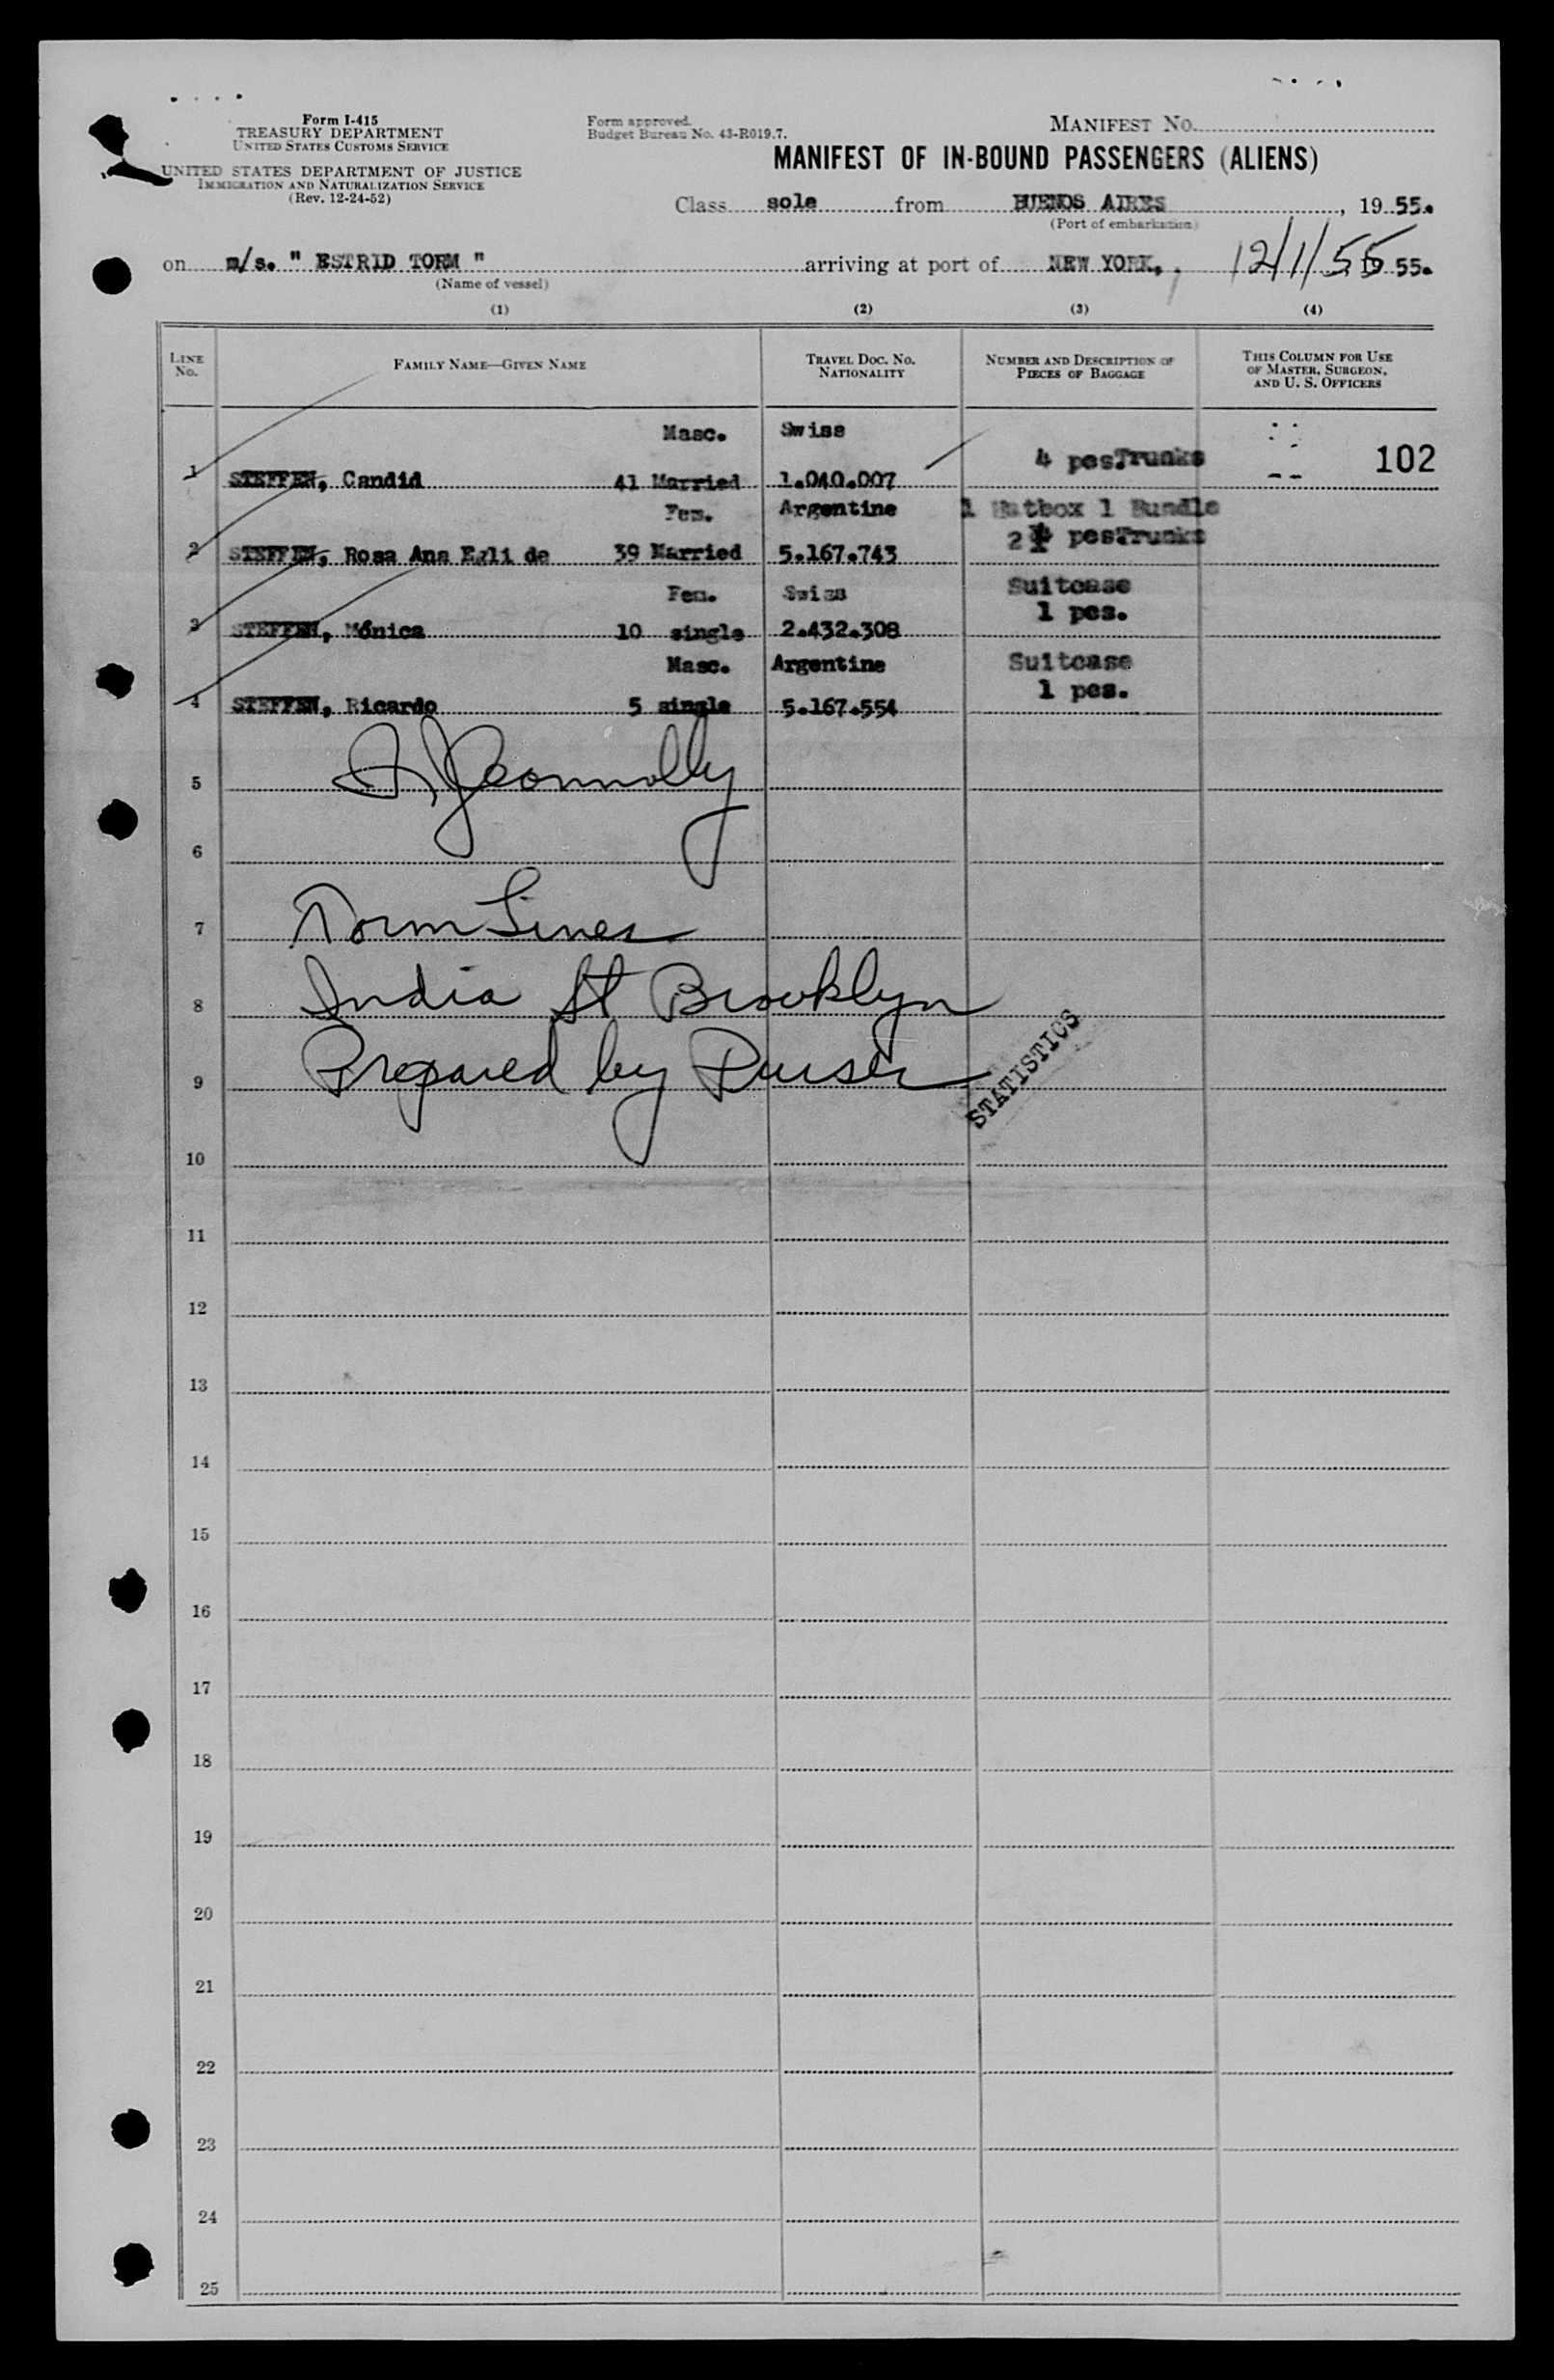 Form I-415
TREASURY DEPARTMENT
UNITED STATES CUSTOMS SERVICE
UNITED STATES DEPARTMENT OF JUSTICE
IMMIGRATION AND NATURALIZATION SERVICE
(Rev. 12-24-52)
Form approved.
Budget Bureau No. 43-R019.7.
MANIFEST NO.
MANIFEST OF IN-BOUND PASSENGERS (ALIENS)
Class sole from BUENOS AIRES, 19 55.
(Port of embarkation)
on m/s. " ESTRID TORM " arriving at port of NEW YORK, 12/1/55 19 55.
(Name of vessel)
(1) (2) (3) (4)
LINE NO. FAMILY NAME—GIVEN NAME TRAVEL DOC. NO. NATIONALITY NUMBER AND DESCRIPTION OF PIECES OF BAGGAGE THIS COLUMN FOR USE OF MASTER, SURGEON, AND U. S. OFFICERS
Masc. Swiss
1 STEFFEN, Candid 41 Married 1.040.007 4 pcs Trunks 102
Fem. Argentine 1 Hatbox 1 Bundle
2 STEFFEN, Rosa Ana Egli de 39 Married 5.167.743 2 pcs Trunks
Fem. Swiss Suitcase
3 STEFFEN, Mónica 10 single 2.432.308 1 pcs.
Masc. Argentine Suitcase
4 STEFFEN, Ricardo 5 single 5.167.554 1 pcs.
5 Connolly
6
7 Torm Lines
8 India St Brooklyn
9 Prepared by Purser
STATISTICS
10
11
12
13
14
15
16
17
18
19
20
21
22
23
24
25